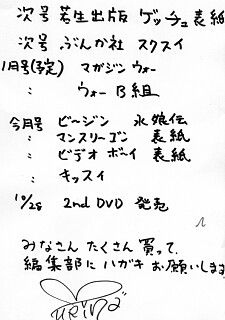 次号 若生出版 ゲッチュ表紙
次号 ぶんか社 スクスイ
1月号(予定) マガジンウォー
〃 ウォーB組
今月号 ビージン 水娘伝
〃 マンスリーゴン 表紙
〃 ビデオボーイ 表紙
〃 キッスイ
10/28 2nd DVD 発売
みなさん たくさん 買って、
編集部に ハガキ お願いします